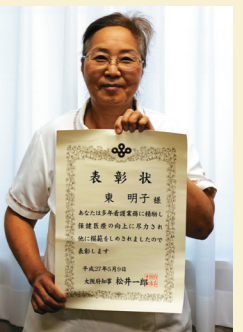 表彰状
東 明子 様
あなたは多年看護業務に精励し
保健医療の向上に尽力され
他に模範をしめされましたので
表彰します
平成27年5月9日
大阪府知事 松井一郎